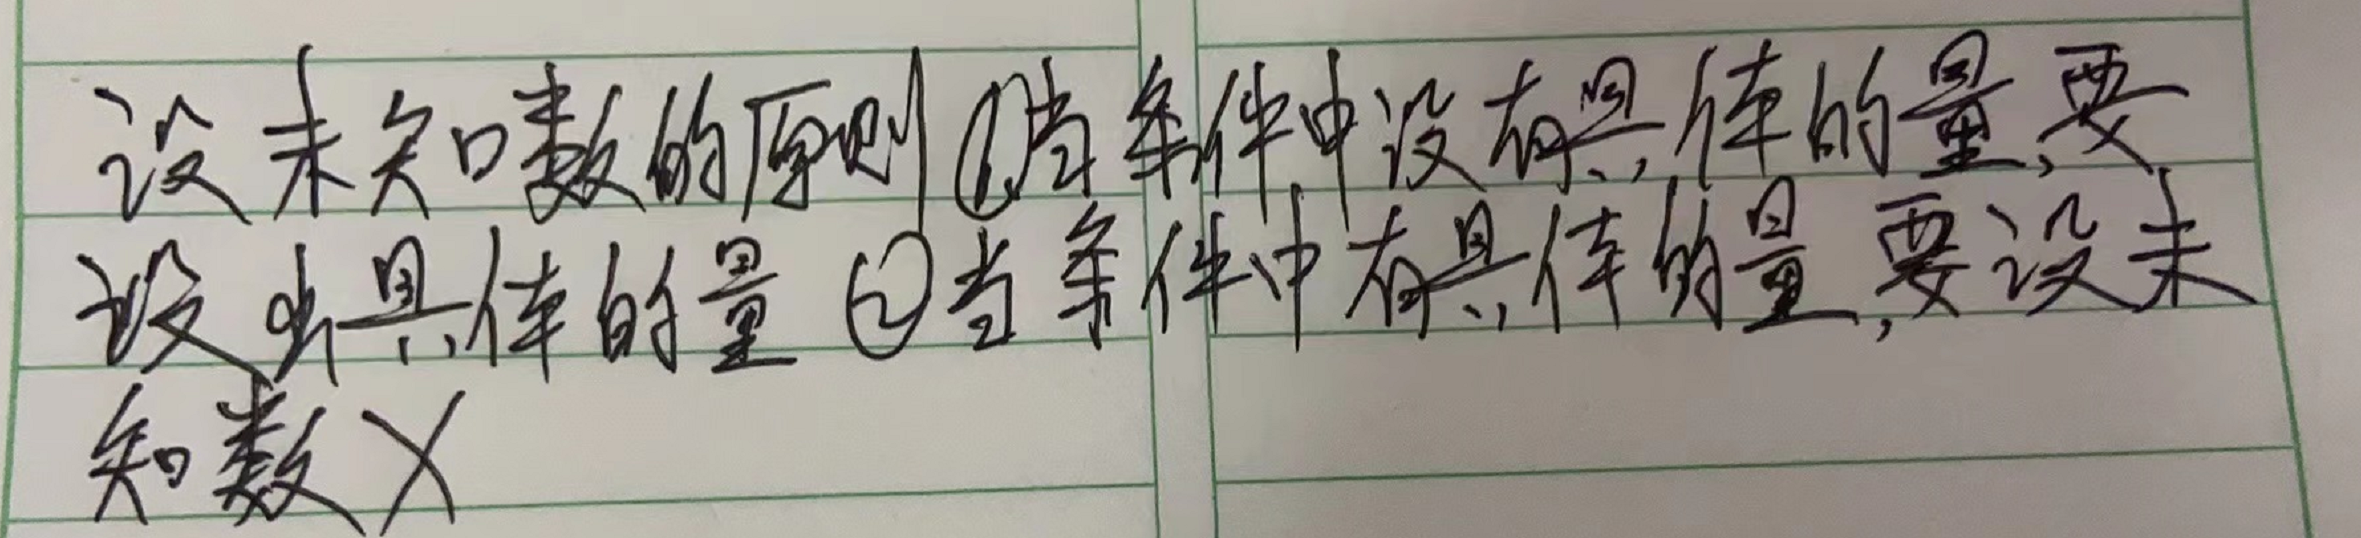 设未知数的原则①当条件中没有具体的量,要
设出具体的量②当条件中有具体的量,要设未
知数X